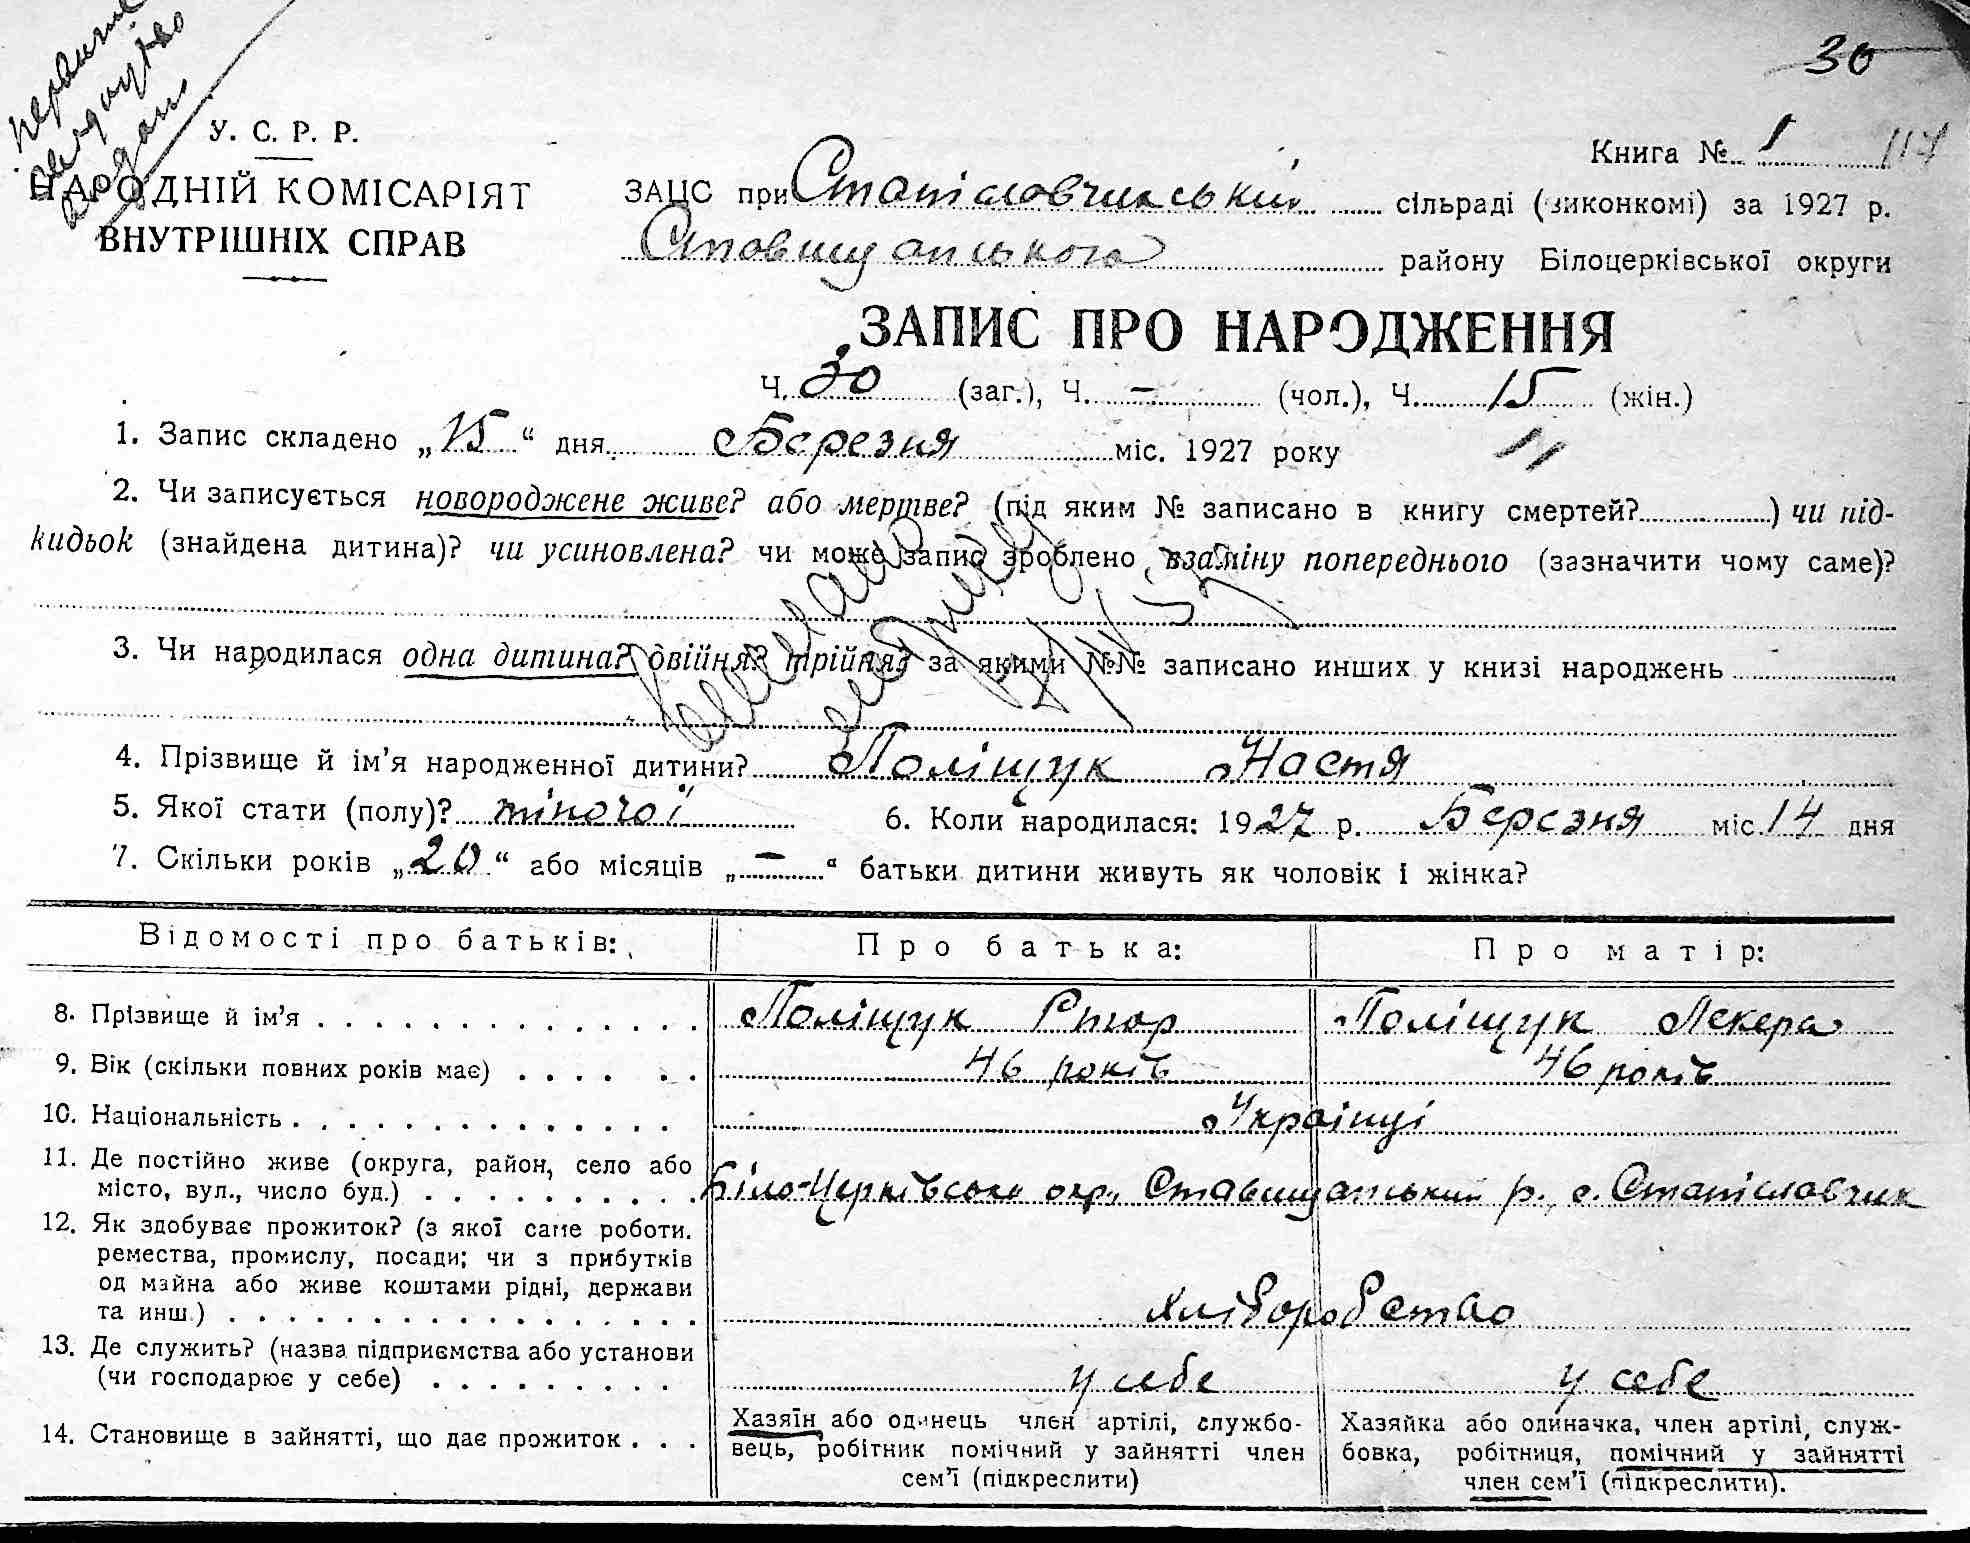 30
У. С. Р. Р.
НАРОДНІЙ КОМІСАРІЯТ
ВНУТРІШНІХ СПРАВ
Книга № 1 117
ЗАЦС при Станіславчикській сільраді (виконкомі) за 1927 р.
Ставищанського району Білоцерківської округи
ЗАПИС ПРО НАРОДЖЕННЯ
Ч. 30 (заг.), Ч. – (чол.), Ч. 15 (жін.)
1. Запис складено „15“ дня Березня міс. 1927 року
2. Чи записується новороджене живе? або мертве? (під яким № записано в книгу смертей?) чи під-
кидьок (знайдена дитина)? чи усиновлена? чи може запис зроблено взаміну попереднього (зазначити чому саме)?
3. Чи народилася одна дитина? двійня? трійня? за якими №№ записано инших у книзі народжень
4. Прізвище й ім’я народженної дитини? Поліщук Настя
5. Якої стати (полу)? жіночої 6. Коли народилася: 1927 р. Березня міс. 14 дня
7. Скільки років „20“ або місяців „–“ батьки дитини живуть як чоловік і жінка?
Відомості про батьків: Про батька: Про матір:
8. Прізвище й ім’я Поліщук Поліщук Лекера
9. Вік (скільки повних років має) 46 років 46 років
10. Національність Українці
11. Де постійно живе (округа, район, село або
місто, вул., число буд.) Біло-Церківська окр., Ставищанський р., с. Станіславчик
12. Як здобуває прожиток? (з якої саме роботи.
ремества, промислу, посади; чи з прибутків
од майна або живе коштами рідні, держави
та инш.) Хліборобство
13. Де служить? (назва підприємства або установи
(чи господарює у себе) у себе у себе
14. Становище в зайнятті, що дає прожиток
Хазяїн або одинець член артілі, службо-
вець, робітник помічний у зайнятті член
сем’ї (підкреслити)
Хазяйка або одиначка, член артілі, служ-
бовка, робітниця, помічний у зайнятті
член сем’ї (підкреслити).